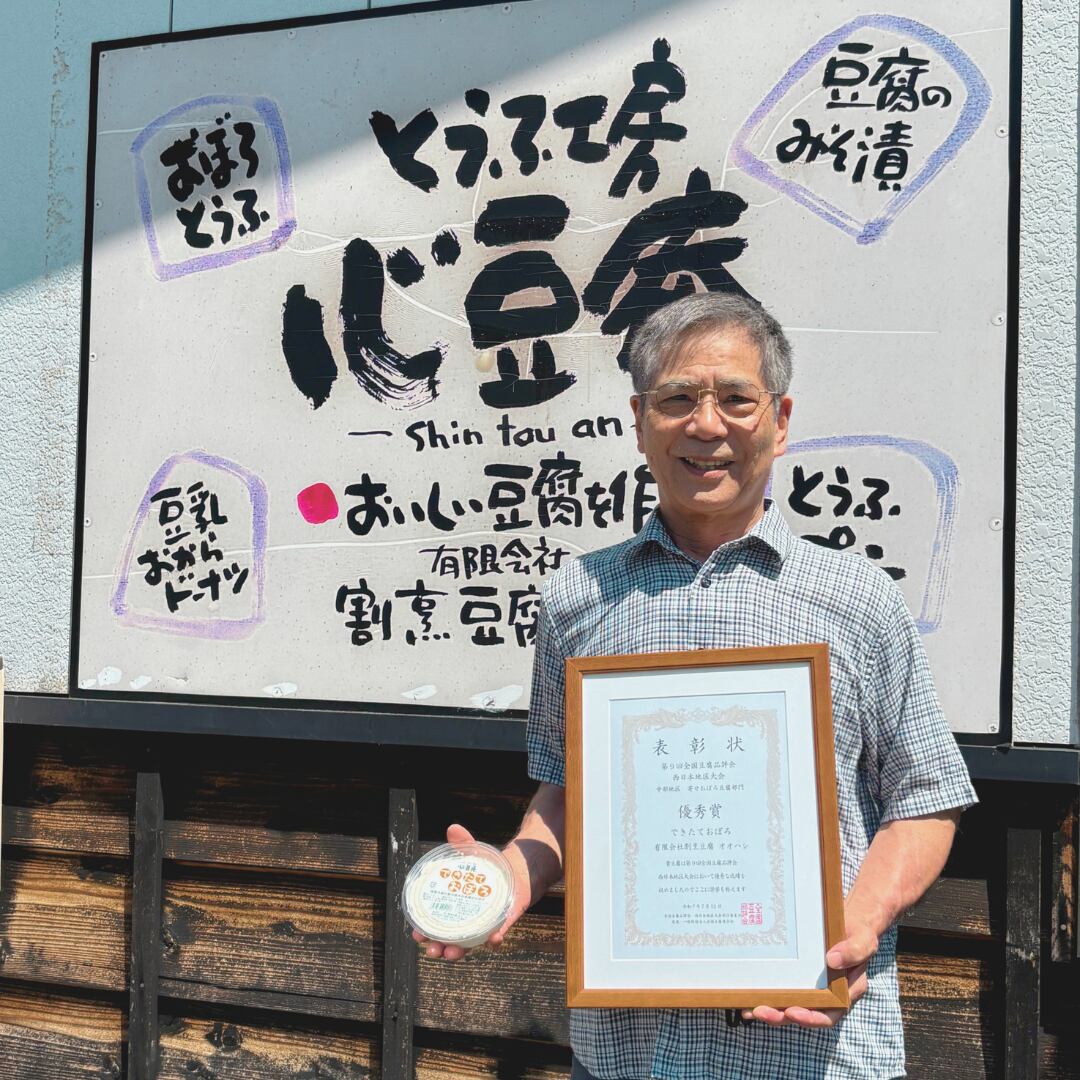 とうふ工房
心豆庵
- shin tou an -
おぼろ
とうふ
豆腐の
みそ漬
豆乳
おから
ドーナツ
おいしい豆腐を作
有限会社
割烹豆腐
とうふ
表彰状
第9回全国豆腐品評会
西日本地区大会
中部地区 寄せおぼろ豆腐部門
優秀賞
できたておぼろ
有限会社割烹豆腐 オオハシ
貴豆腐は第9回全国豆腐品評会
西日本地区大会において優秀な成績を
収めましたのでここに栄誉を称えます
令和7年7月12日
心豆庵
できたて
おぼろ